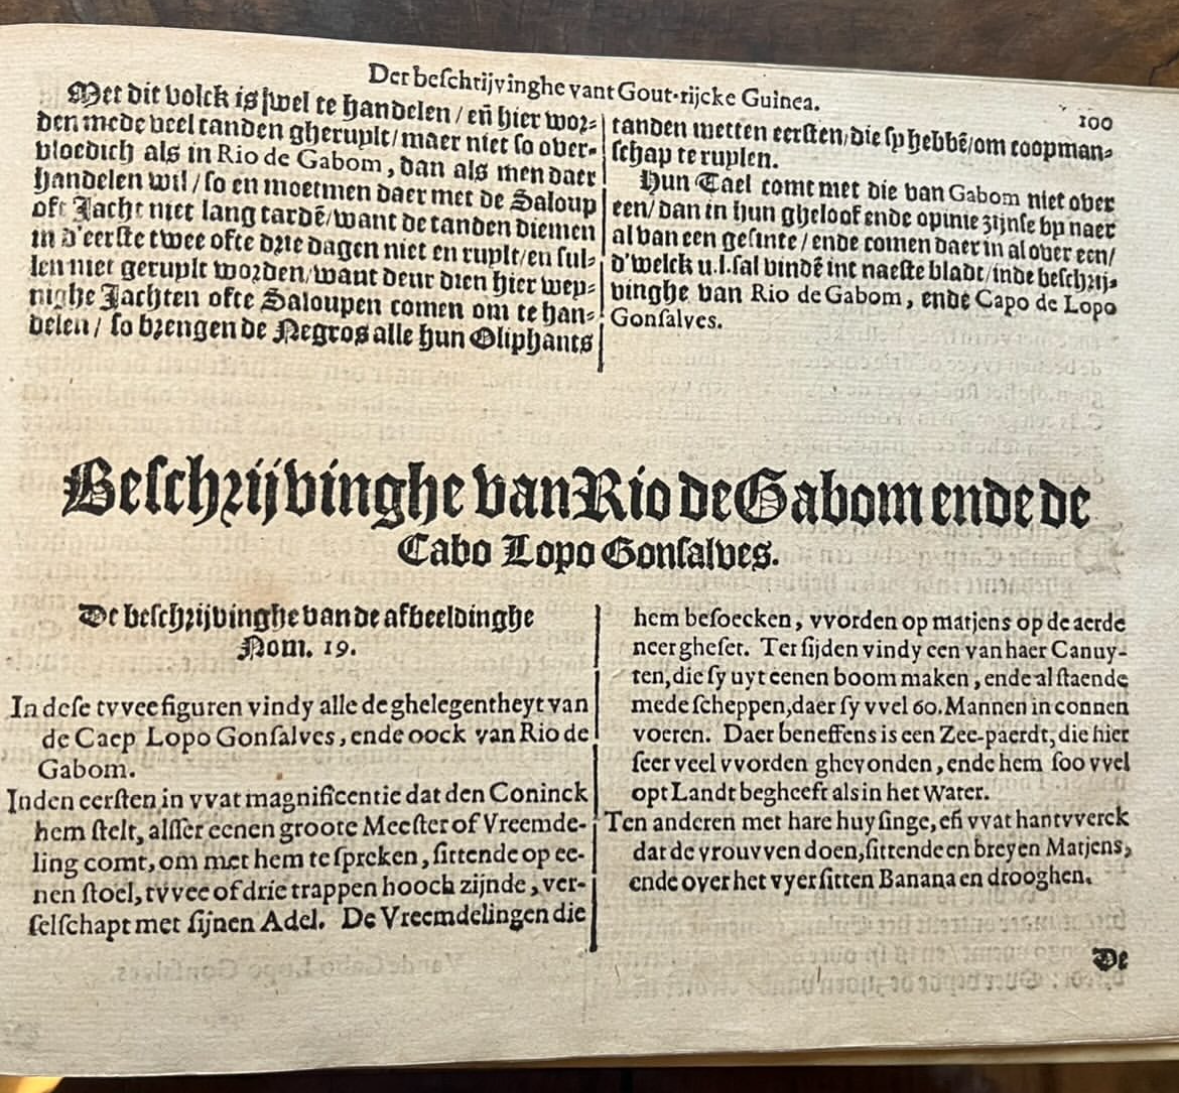 Der beſchrijvinghe vant Gout-rijcke Guinea.
100
Met dit volck is ſwel te handelen / eñ hier wor-
den mede veel tanden gheruylt / maer niet ſo over-
vloedich als in Rio de Gabom, dan als men daer
handelen wil / ſo en moetmen daer met de Saloup
oft Jacht niet lang tardē / want de tanden diemen
in d'eerſte twee ofte drie dagen niet en ruylt / en ſul-
len niet geruylt worden / want deur dien hier wey-
nighe Jachten ofte Saloupen comen om te han-
delen / ſo brengen de Negros alle hun Oliphants
tanden metten eerſten / die ſy hebbē / om coopman-
ſchap te ruylen.
Hun Tael comt met die van Gabom niet over
een / dan in hun gheloof ende opinie zijnſe by naer
al van een geſinte / ende comen daer in al over een /
d'welck u.l. ſal vindē int naeſte bladt / inde beſchrij-
vinghe van Rio de Gabom, ende Capo de Lopo
Gonſalves.
Beſchrijvinghe van Rio de Gabom ende de
Cabo Lopo Gonſalves.
De beſchrijvinghe van de afbeeldinghe
Nom. 19.
In deſe tvvee figuren vindy alle de ghelegentheyt van
de Caep Lopo Gonſalves, ende oock van Rio de
Gabom.
Inden eerſten in vvat magnificentie dat den Coninck
hem ſtelt, alſſer eenen groote Meeſter of Vreemde-
ling comt, om met hem te ſpreken, ſittende op ee-
nen ſtoel, tvvee of drie trappen hooch zijnde, ver-
ſelſchapt met ſijnen Adel. De Vreemdelingen die
hem beſoecken, vvorden op matjens op de aerde
neer gheſet. Ter ſijden vindy een van haer Canuy-
ten, die ſy uyt eenen boom maken, ende al ſtaende
mede ſcheppen, daer ſy vvel 60. Mannen in connen
voeren. Daer beneffens is een Zee-paerdt, die hier
ſeer veel vvorden ghevonden, ende hem ſoo vvel
opt Landt begheeft als in het Water.
Ten anderen met hare huyſinge, eñ vvat hantvverck
dat de vrouvven doen, ſittende en breyen Matjens,
ende over het vyer ſitten Banana en drooghen.
De